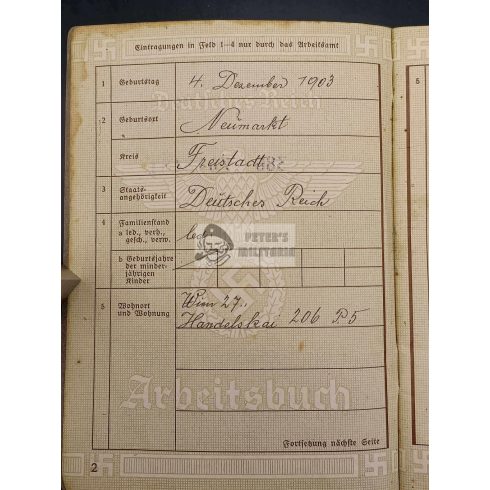 Eintragungen in Feld 1–4 nur durch das Arbeitsamt
1 Geburtstag 4. Dezember 1903
Deutsches Reich
2 Geburtsort Neumarkt
Kreis Freistadt
3 Staats-
angehörigkeit Deutsches Reich
4 Familienstand
a led., verh.,
gesch., verw. led
PETER'S
MILITARIA
b Geburtsjahre
der minder-
jährigen
Kinder
5 Wohnort
und Wohnung Wien 27.,
Handelskai 206 P5
Arbeitsbuch
Fortsetzung nächste Seite
2
5